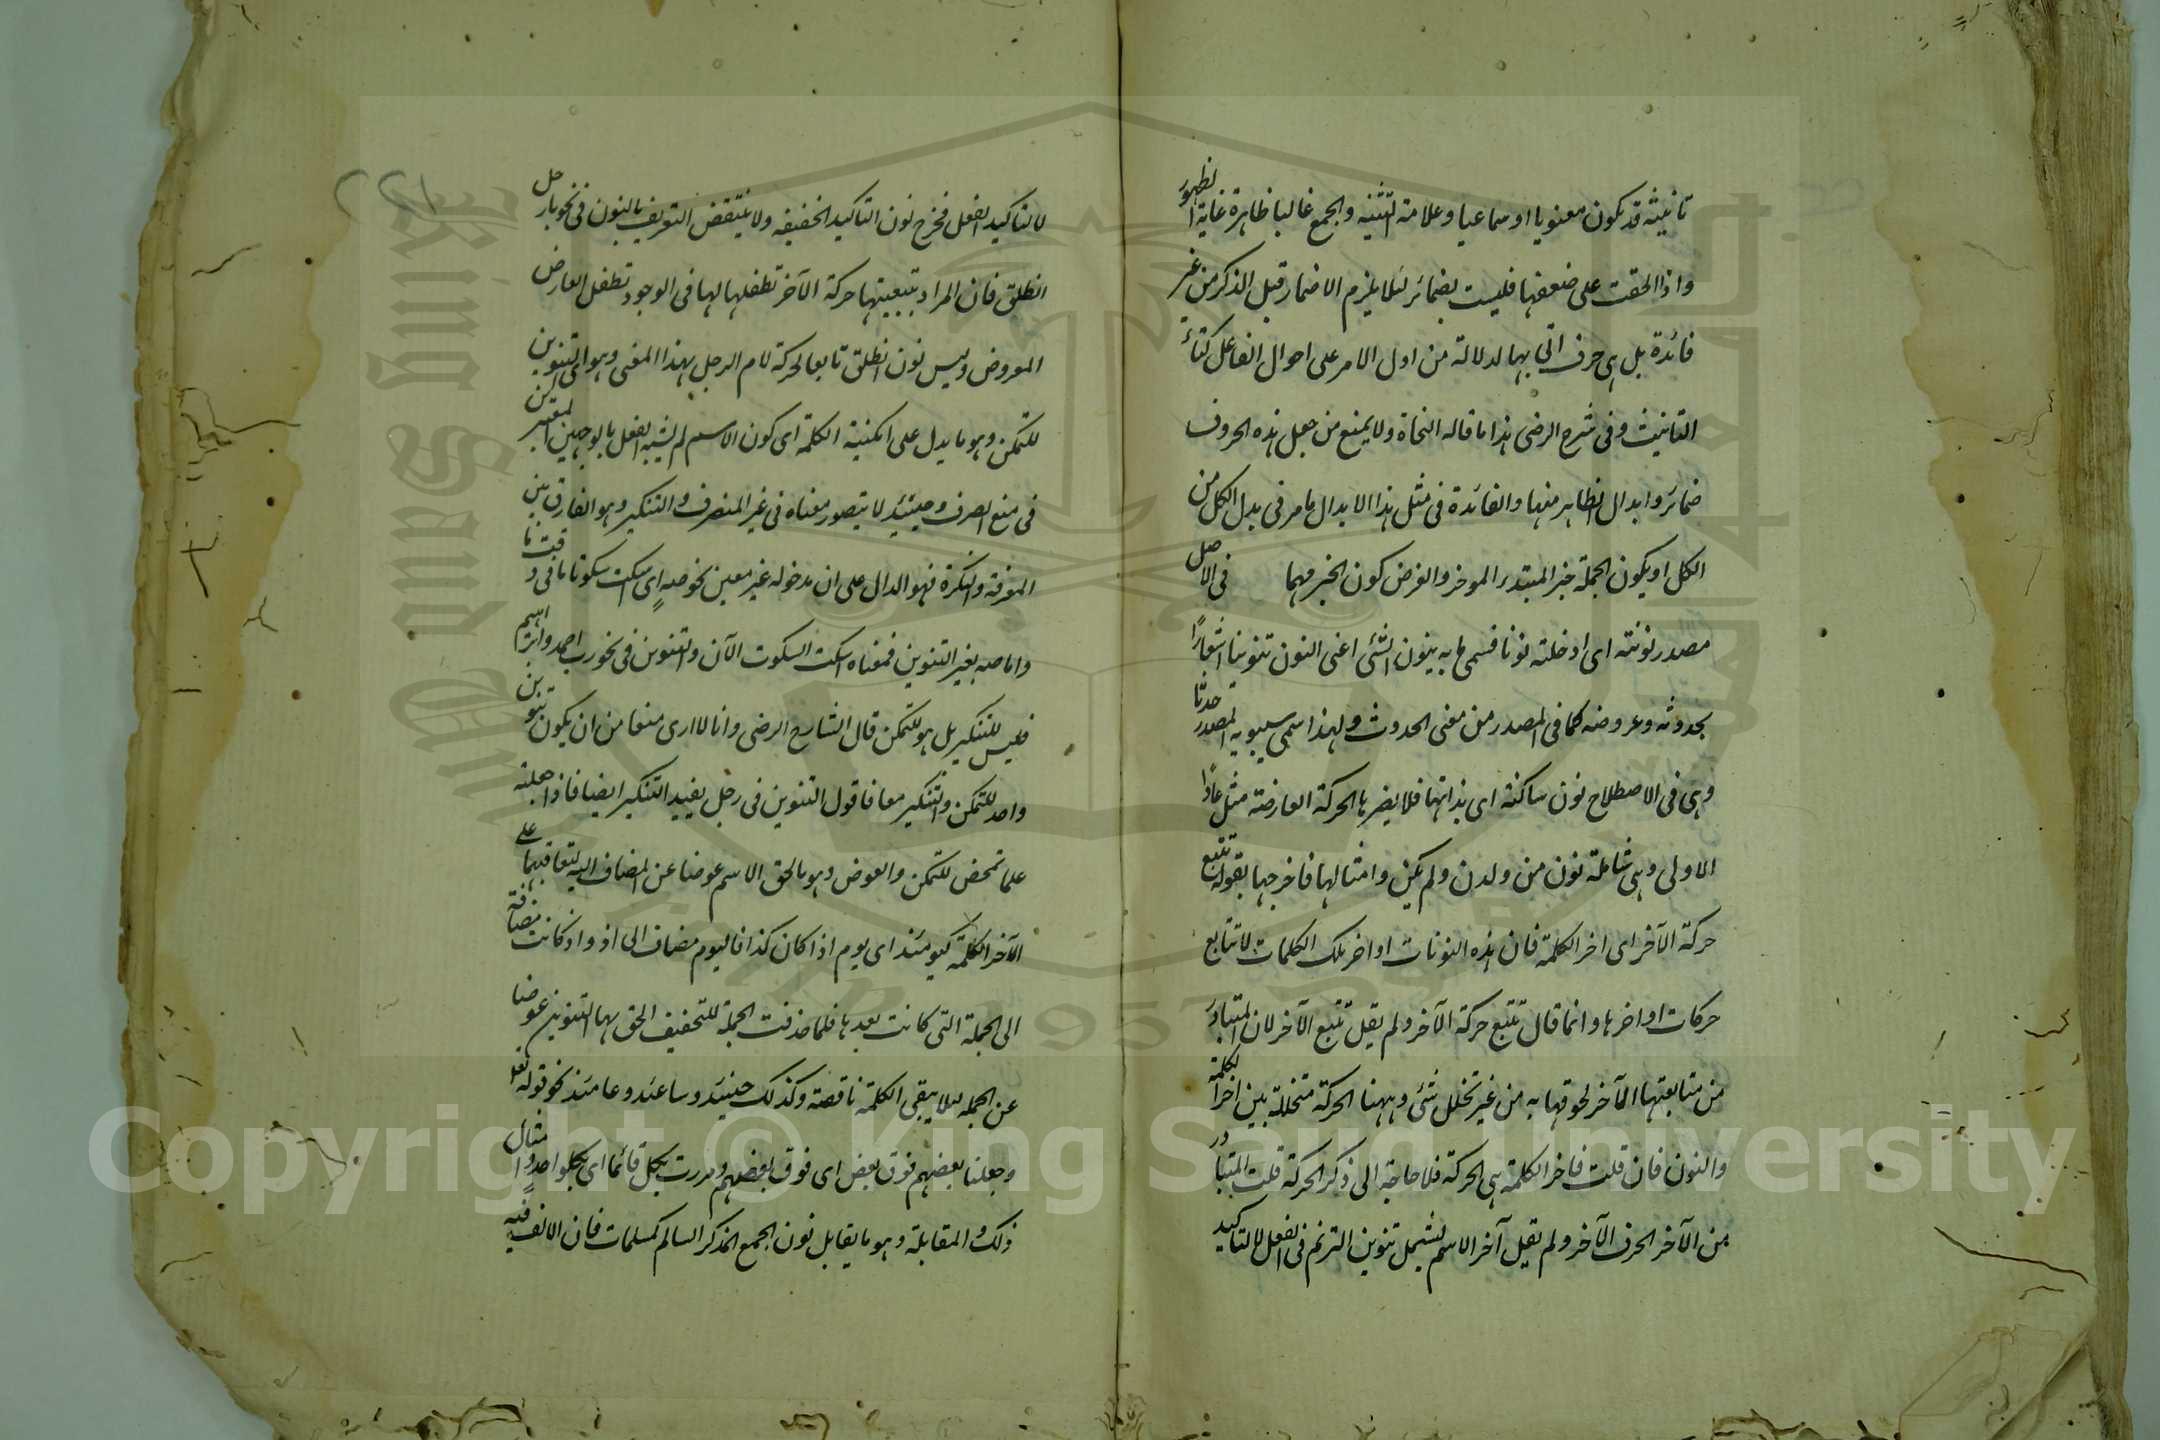 تانيثه قد يكون معنويا او سماعيا وعلامة التثنيه والجمع غالبا ظاهرة غاية الظهور
واذا الحقت على ضعفها فليست بضمائر لئلا يلزم الاضمار قبل الذكر من غير
فائدة بل هى حرف اتى بها لدلالة من اول الامر على احوال الفاعل كتاء
التانيث وفى شرح الرضى هذا ما قاله النحاة ولا يمنع من جعل هذه الحروف
ضمائر وابدال الظاهر منها والفائدة فى مثل هذا الابدال ما مر فى بدل الكل من
الكل او يكون الجملة خبر المبتدء الموخر والغرض كون الخبر مهما فى الاصل
مصدر نونته اى ادخلته نونا فسمى ما به ينون الشئ اعنى النون تنوينا اشعارًا
بحدوثه وعروضه كما فى المصدر من معنى الحدوث ولهذا سمى سيبويه المصدر حدثا
وهى فى الاصطلاح نون ساكنة اى بذاتها فلا يضرها الحركة العارضة مثل عادًا
الاولى وهى شاملة نون من ولدن ولم يكن وامثالها فاخرجها بقوله تتبع
حركة الآخر اى اخر الكلمة فان هذه النونات اواخر تلك الكلمات لا تتابع
حركات اواخرها وانما قال تتبع حركة الآخر ولم يقل تتبع الآخر لان المتبادر
من متابعتها الآخر لحوقها به من غير تخلل شئ وههنا الحركة متخللة بين اخر الكلمة
والنون فان قلت فاخر الكلمة هى الحركة فلا حاجة الى ذكر الحركة قلت المتبادر
من الآخر الحرف الآخر ولم يقل آخر الاسم ليشمل تنوين الترنم فى الفعل لا لتاكيد
لا لتاكيد الفعل فخرج نون التاكيد الخفيفه ولا ينتقض التعريف بالنون فى نحو يا رجل
انطلق فان المراد بتبعيتها حركة الآخر تطفلها لها فى الوجود تطفل العارض
المعروض وليس نون انطلق تابعا لحركة لام الرجل بهذا المعنى وهو اى التنوين
للتمكن وهو ما يدل على امكنية الكلمة اى كون الاسم لم يشبه الفعل بالوجهين المعتبرين
فى منع الصرف وحينئذ لا يتصور معناه فى غير المنصرف والتنكير وهو الفارق بين
المعرفة والنكرة فهو الدال على ان مدخوله غير معين نحو صهٍ اى اسكت سكوتا ما فى وقت ما
واما صه بغير التنوين فمعناه اسكت السكوت الآن والتنوين فى نحو رب احمد وابراهيم
فليس للتنكير بل هو للتمكن قال الشارح الرضى وانا لا ارى منعا من ان يكون تنوين
واحد للتمكن والتنكير معا فاقول التنوين فى رجل يفيد التنكير ايضا فاذا جعلته
علما تمحض للتمكن والعوض وهو ما لحق الاسم عوضا عن المضاف اليه لتعاقبهما على
الآخر الكلمة كيومئذ اى يوم اذا كان كذا فاليوم مضاف الى اذ واذ كانت مضافة
الى الجملة التى كانت بعدها فلما حذفت الجملة للتخفيف الحق بها التنوين عوضا
عن الجمله لئلا يبقى الكلمة ناقصة وكذلك حينئذ وساعتئذ وعامئذ نحو قوله تعا
وجعلنا بعضهم فوق بعض اى فوق بعضهم ومررت بكل قائما اى بكل واحد وامثال
ذلك والمقابلة وهو ما يقابل نون الجمع المذكر السالم كمسلمات فان الالف فيه